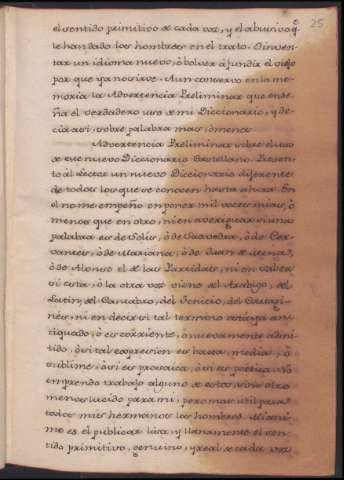 25
el sentido primitivo de cada voz, y el abusivo q.e
le han dado los hombres en el trato. O inven-
tar un idioma nuevo, ò bolver à fundir el viejo
por que ya no sirve. Aun conservo en la me-
moria la Advertencia Preliminar que ense-
ña el verdadero uso de mi Diccionario, y de-
cia asi, sobre palabra mas, ò menos
Advertencia Preliminar sobre el uso
de este nuevo Diccionario Castellano. Presen-
to al Lector un nuevo Diccionario diferente
de todos los que se conocen hasta ahora. En
el no me empeño en poner mil voces mas, ò
menos que en otro, ni en averiguar si una
palabra es de Solis, ò de Saavedra, ò de Cer-
vantes, ò de Mariana, ò de Juan de Mena,
ò de Alonso el de las Partidas, ni en saber
si esta, ò la otra voz viene del Arabigo, del
Latin, del Cantabro, del Fenicio, del Cartagi-
nès, ni en decir si tal termino esta ya an-
tiquado, ò es corriente, ò nuevamente admi-
tido, ò si tal expresion es baxa, media, ò
sublime, ò si es prosaica, ò si es poètica. No
emprendo trabajo alguno de estos, sino otro
menos lucido para mi, pero mas util para
todos mis hermanos los hombres. Mi ani-
mo es el publicar lisa, y llanamente el sen-
tido primitivo, genuino, y real de cada voz